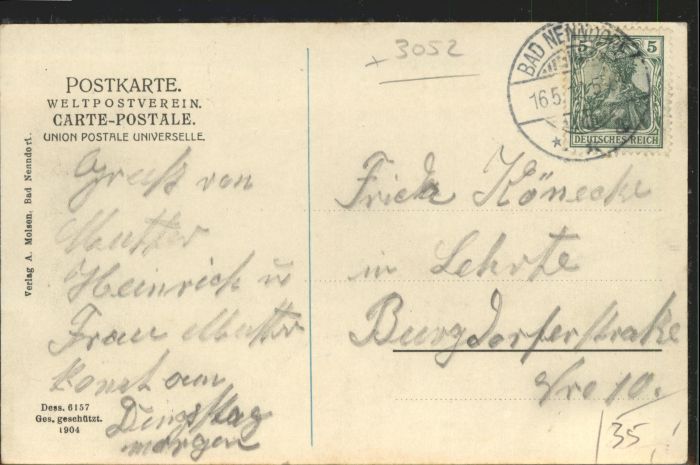 + 3052
BAD NENNDORF
16.5.
5 5
DEUTSCHES REICH
POSTKARTE.
WELTPOSTVEREIN.
CARTE-POSTALE.
UNION POSTALE UNIVERSELLE.
Verlag A. Molsen, Bad Nenndorf.
Gruß von
Mutter
Heinrich u
Frau Mutter
komt am
Dingstag
morgen
Dess. 6157
Ges. geschützt.
1904
Könecke
in Lehrte
Burgdorferstraße
Nro 10.
35